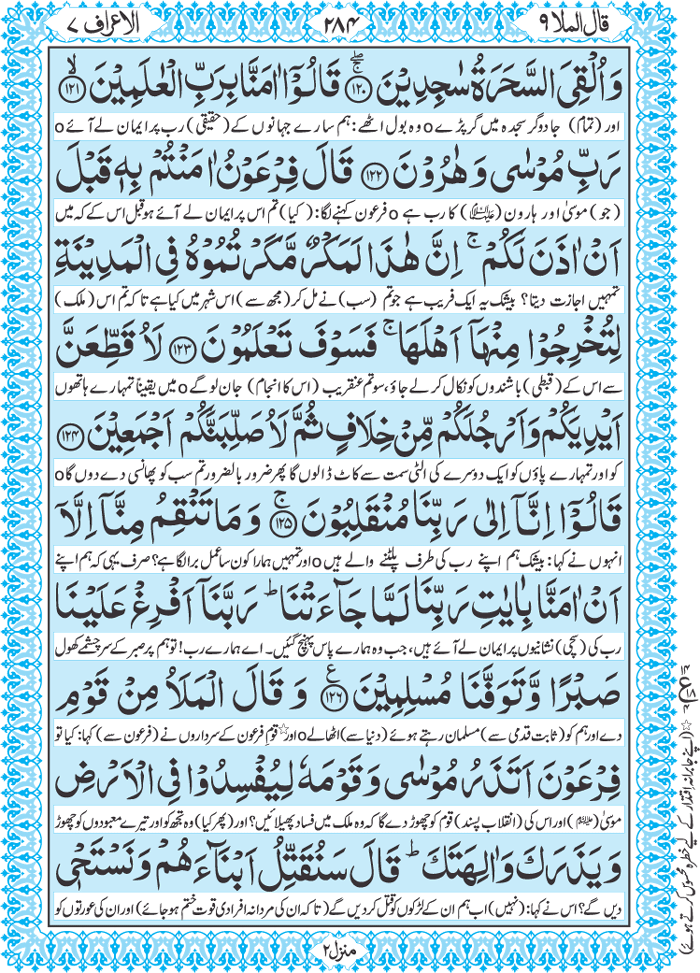 قال الملا ٩
٢٨٤
الاعراف ٧
وَاُلْقِیَ السَّحَرَةُ سٰجِدِیْنَ ﴿۱۲۰﴾ۚۖ قَالُوْۤا اٰمَنَّا بِرَبِّ الْعٰلَمِیْنَ ﴿۱۲۱﴾ۙ
اور (تمام) جادوگر سجدہ میں گر پڑے o وہ بول اٹھے: ہم سارے جہانوں کے (حقیقی) رب پر ایمان لے آئے o
رَبِّ مُوْسٰی وَ هٰرُوْنَ ﴿۱۲۲﴾ قَالَ فِرْعَوْنُ اٰمَنْتُمْ بِهٖ قَبْلَ
(جو) موسیٰ اور ہارون (علیہما السلام) کا رب ہے o فرعون کہنے لگا: (کیا) تم اس پر ایمان لے آئے ہو قبل اس کے کہ میں
اَنْ اٰذَنَ لَكُمْ ۚ اِنَّ هٰذَا لَمَكْرٌ مَّكَرْتُمُوْهُ فِی الْمَدِیْنَةِ
تمہیں اجازت دیتا؟ بیشک یہ ایک فریب ہے جو تم (سب) نے مل کر (مجھ سے) اس شہر میں کیا ہے تاکہ تم اس (ملک)
لِتُخْرِجُوْا مِنْهَاۤ اَهْلَهَا ۚ فَسَوْفَ تَعْلَمُوْنَ ﴿۱۲۳﴾ لَاُ قَطِّعَنَّ
سے اس کے (قبطی) باشندوں کو نکال کر لے جاؤ، سو تم عنقریب (اس کا انجام) جان لو گے o میں یقیناً تمہارے ہاتھوں
اَیْدِیَكُمْ وَ اَرْجُلَكُمْ مِّنْ خِلَافٍ ثُمَّ لَاُ صَلِّبَنَّكُمْ اَجْمَعِیْنَ ﴿۱۲۴﴾
کو اور تمہارے پاؤں کو ایک دوسرے کی الٹی سمت سے کاٹ ڈالوں گا پھر ضرور بالضرور تم سب کو پھانسی دے دوں گا o
قَالُوْۤا اِنَّاۤ اِلٰی رَبِّنَا مُنْقَلِبُوْنَ ﴿۱۲۵﴾ۚ وَ مَا تَنْقِمُ مِنَّاۤ اِلَّاۤ
انہوں نے کہا: بیشک ہم اپنے رب کی طرف پلٹنے والے ہیں o اور تمہیں ہمارا کون سا عمل برا لگا ہے؟ صرف یہی کہ ہم اپنے
اَنْ اٰمَنَّا بِاٰیٰتِ رَبِّنَا لَمَّا جَآءَتْنَا ؕ رَبَّنَاۤ اَفْرِغْ عَلَیْنَا
رب کی (سچی) نشانیوں پر ایمان لے آئے ہیں، جب وہ ہمارے پاس پہنچ گئیں۔ اے ہمارے رب! تو ہم پر صبر کے سرچشمے کھول
صَبْرًا وَّ تَوَفَّنَا مُسْلِمِیْنَ ﴿۱۲۶﴾ع وَ قَالَ الْمَلَاُ مِنْ قَوْمِ
دے اور ہم کو (ثابت قدمی سے) مسلمان رہتے ہوئے (دنیا سے) اٹھالے o اور☆ قومِ فرعون کے سرداروں نے (فرعون سے) کہا: کیا تو
فِرْعَوْنَ اَتَذَرُ مُوْسٰی وَ قَوْمَهٗ لِیُفْسِدُوْا فِی الْاَرْضِ
موسیٰ (علیہ السلام) اور اس کی (انقلاب پسند) قوم کو چھوڑ دے گا کہ وہ ملک میں فساد پھیلائیں؟ اور (پھر کیا) وہ تجھ کو اور تیرے معبودوں کو چھوڑ
وَ یَذَرَكَ وَ اٰلِهَتَكَ ؕ قَالَ سَنُقَتِّلُ اَبْنَآءَهُمْ وَ نَسْتَحْیٖ
دیں گے؟ اس نے کہا: (نہیں) اب ہم ان کے لڑکوں کو قتل کر دیں گے (تاکہ ان کی مردانہ افرادی قوت ختم ہو جائے) اور ان کی عورتوں کو
منزل ٢
☆ (اپنے جابرانہ اقتدار کے لیے خطرہ محسوس کرتے ہوئے)